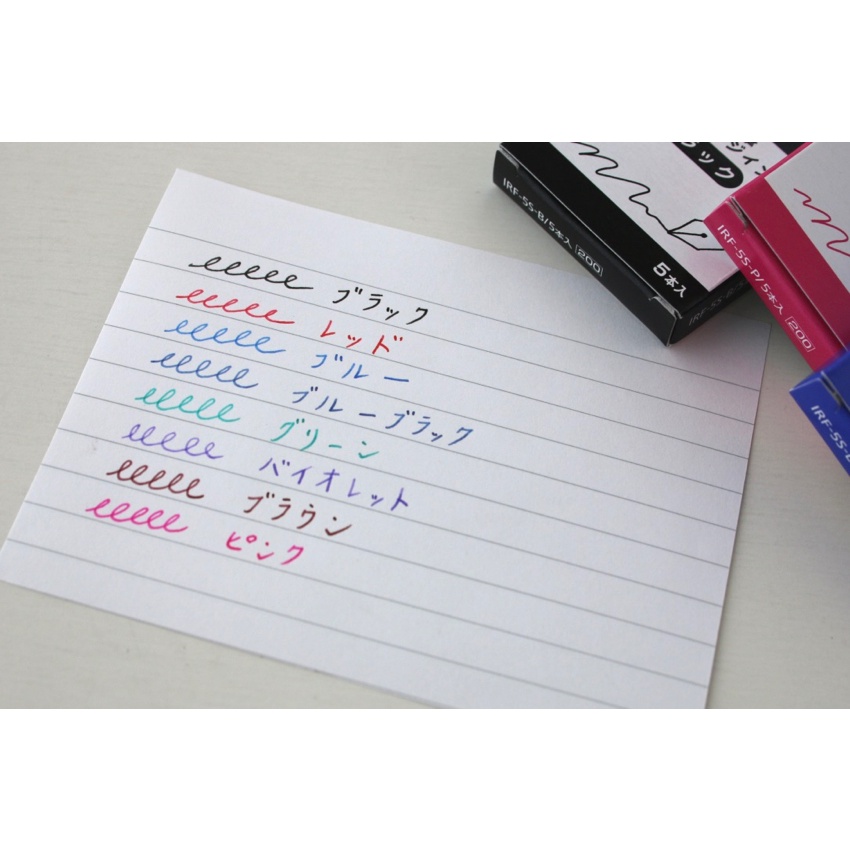 ブラック
レッド
ブルー
ブルーブラック
グリーン
バイオレット
ブラウン
ピンク
ック
5本入
IRF-5S-B/5本入 [200]
IRF-5S-P/5本入 [200]
IRF-5S-